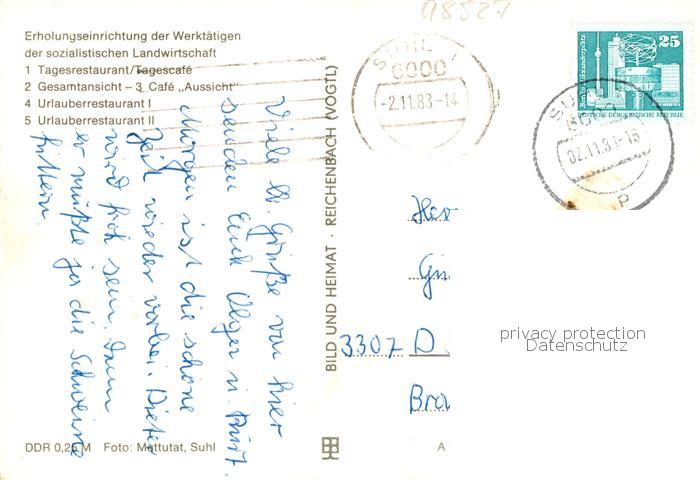 Erholungseinrichtung der Werktätigen
der sozialistischen Landwirtschaft
1 Tagesrestaurant/Tagescafé
2 Gesamtansicht – 3 Café „Aussicht“
4 Urlauberrestaurant I
5 Urlauberrestaurant II
Viele lb. Grüße von hier
senden Euch Olga u.
Morgen ist die schöne
Zeit wieder vorbei. Dieter
wird froh sein, denn
er mußte ja die Schweine
füttern.
DDR 0,25 M Foto: Mattutat, Suhl
BILD UND HEIMAT · REICHENBACH (VOGTL)
SUHL
6000
-2.11.83-14
25
Berlin, Alexanderplatz
DEUTSCHE DEMOKRATISCHE REPUBLIK
02.11.83-15
P
3307 D
Bra
A
privacy protection
Datenschutz